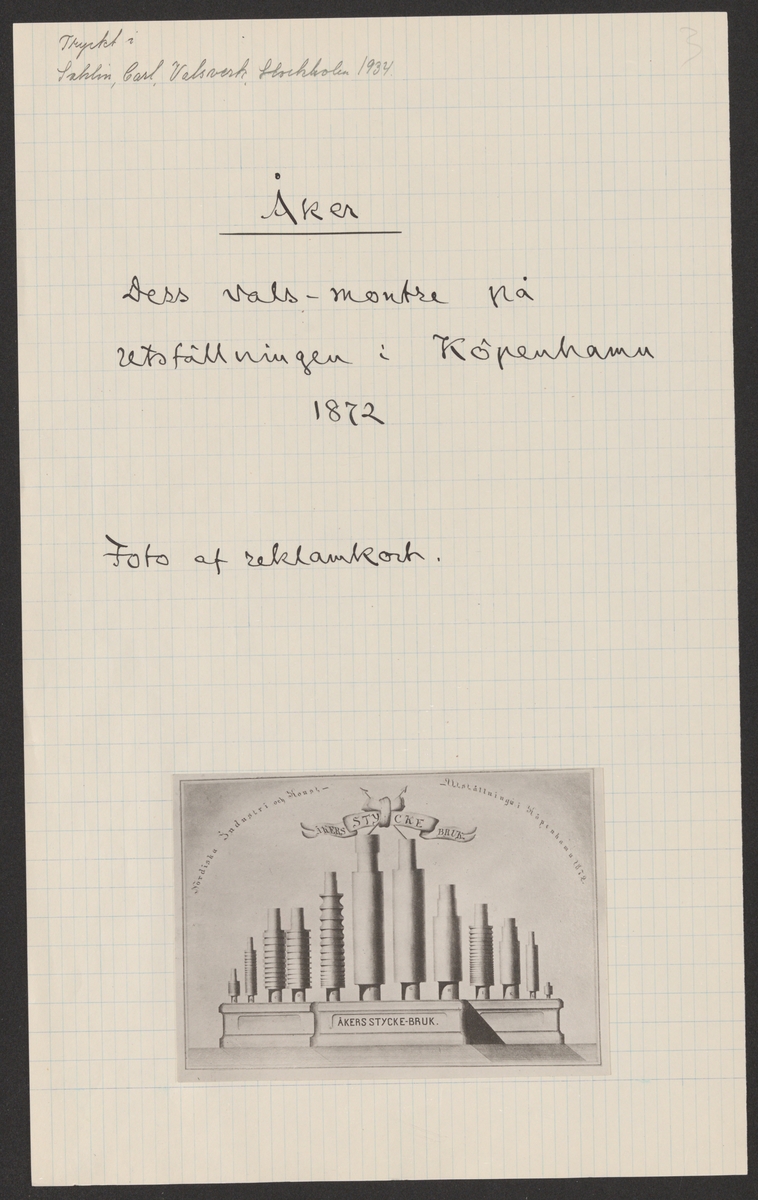 Tryckt i
Sahlin, Carl, Valsverk, Stockholm 1934.
3
Åker
Dess vals-montre på
utställningen i Köpenhamn
1872
Foto af reklamkort.
Nordiska Industri och Konst-
Utställningen i Köpenhamn 1872.
ÅKERS STYCKE BRUK.
ÅKERS STYCKE-BRUK.